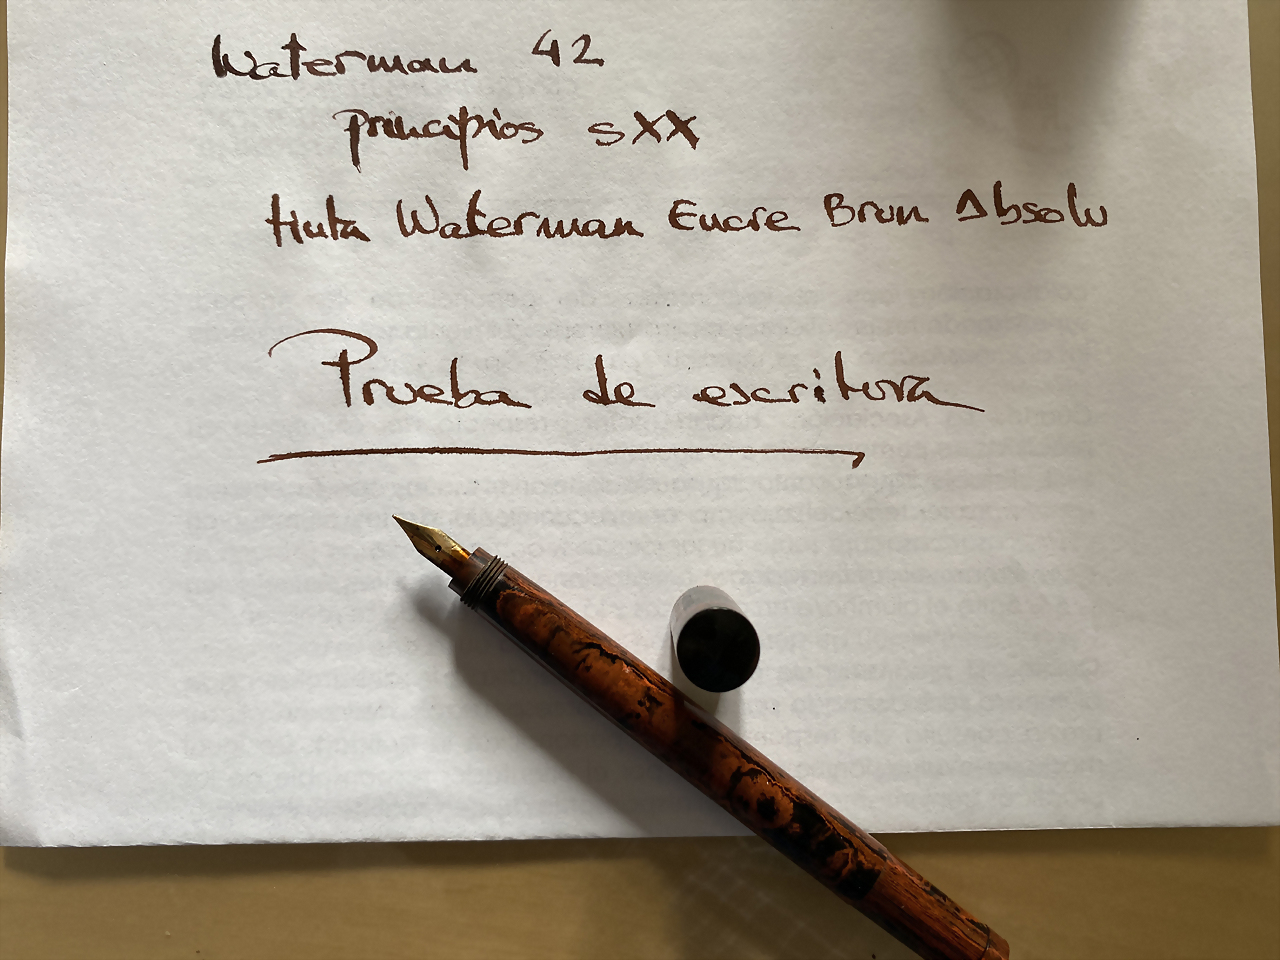 Waterman 42
principios sXX
tinta Waterman Encre Brun Absolu
Prueba de escritura